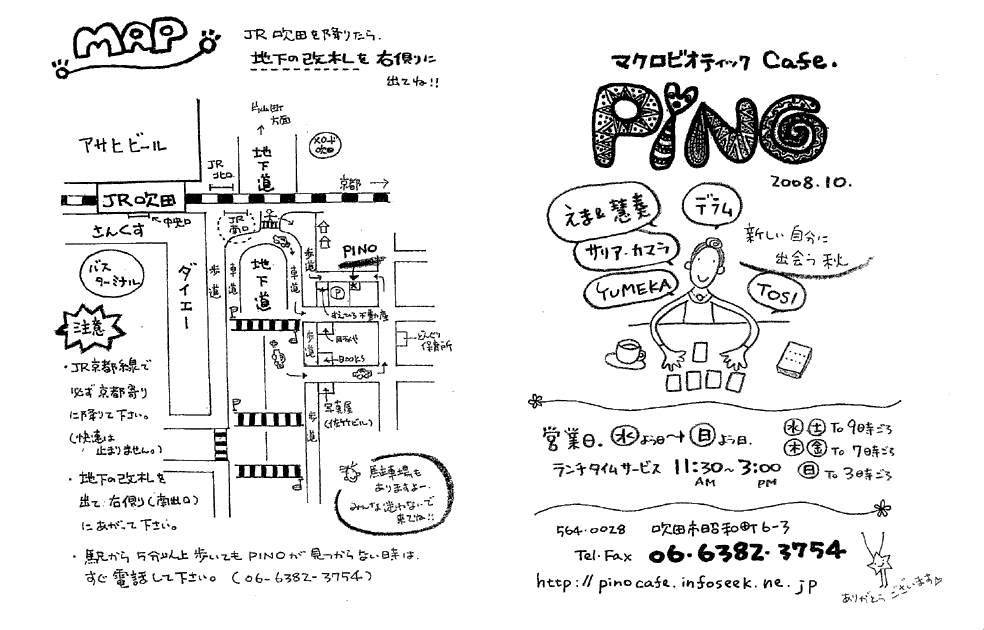 MAP
JR吹田を降りたら、
地下の改札を右側に
出てね!!
片山町
方面
アサヒビール
JR
北口
地下道
メロード
吹田
京都
JR吹田
中央口
さんくす
JR
南口
バス
ターミナル
ダイエー
歩道
車道
地下道
車道
歩道
PINO
P
すえひろ不動産
BOOKS
どんぐり
保育所
写真屋
(佐竹ビル)
歩道
注意
・JR京都線で
必ず京都寄り
に降りて下さい。
(快速は
止まりません。)
・地下の改札を
出て右側(南出口)
にあがって下さい。
駐車場も
ありますよー
みんな迷わないで
来てね!!
・駅から5分以上歩いてもPINOが見つからない時は、
すぐ電話して下さい。(06-6382-3754)
マクロビオティック Cafe.
PiNO
2008.10.
えま&慧奏
デラム
サリア・カマラ
YUMEKA
TOSI
新しい自分に
出会う秋
営業日。水よう日〜日よう日。
ランチタイムサービス 11:30〜3:00
AM PM
水 土 To 9時ごろ
木 金 To 7時ごろ
日 To 3時ごろ
564-0028 吹田市昭和町6-3
Tel・Fax 06・6382・3754
http://pinocafe.infoseek.ne.jp
ありがとうございます